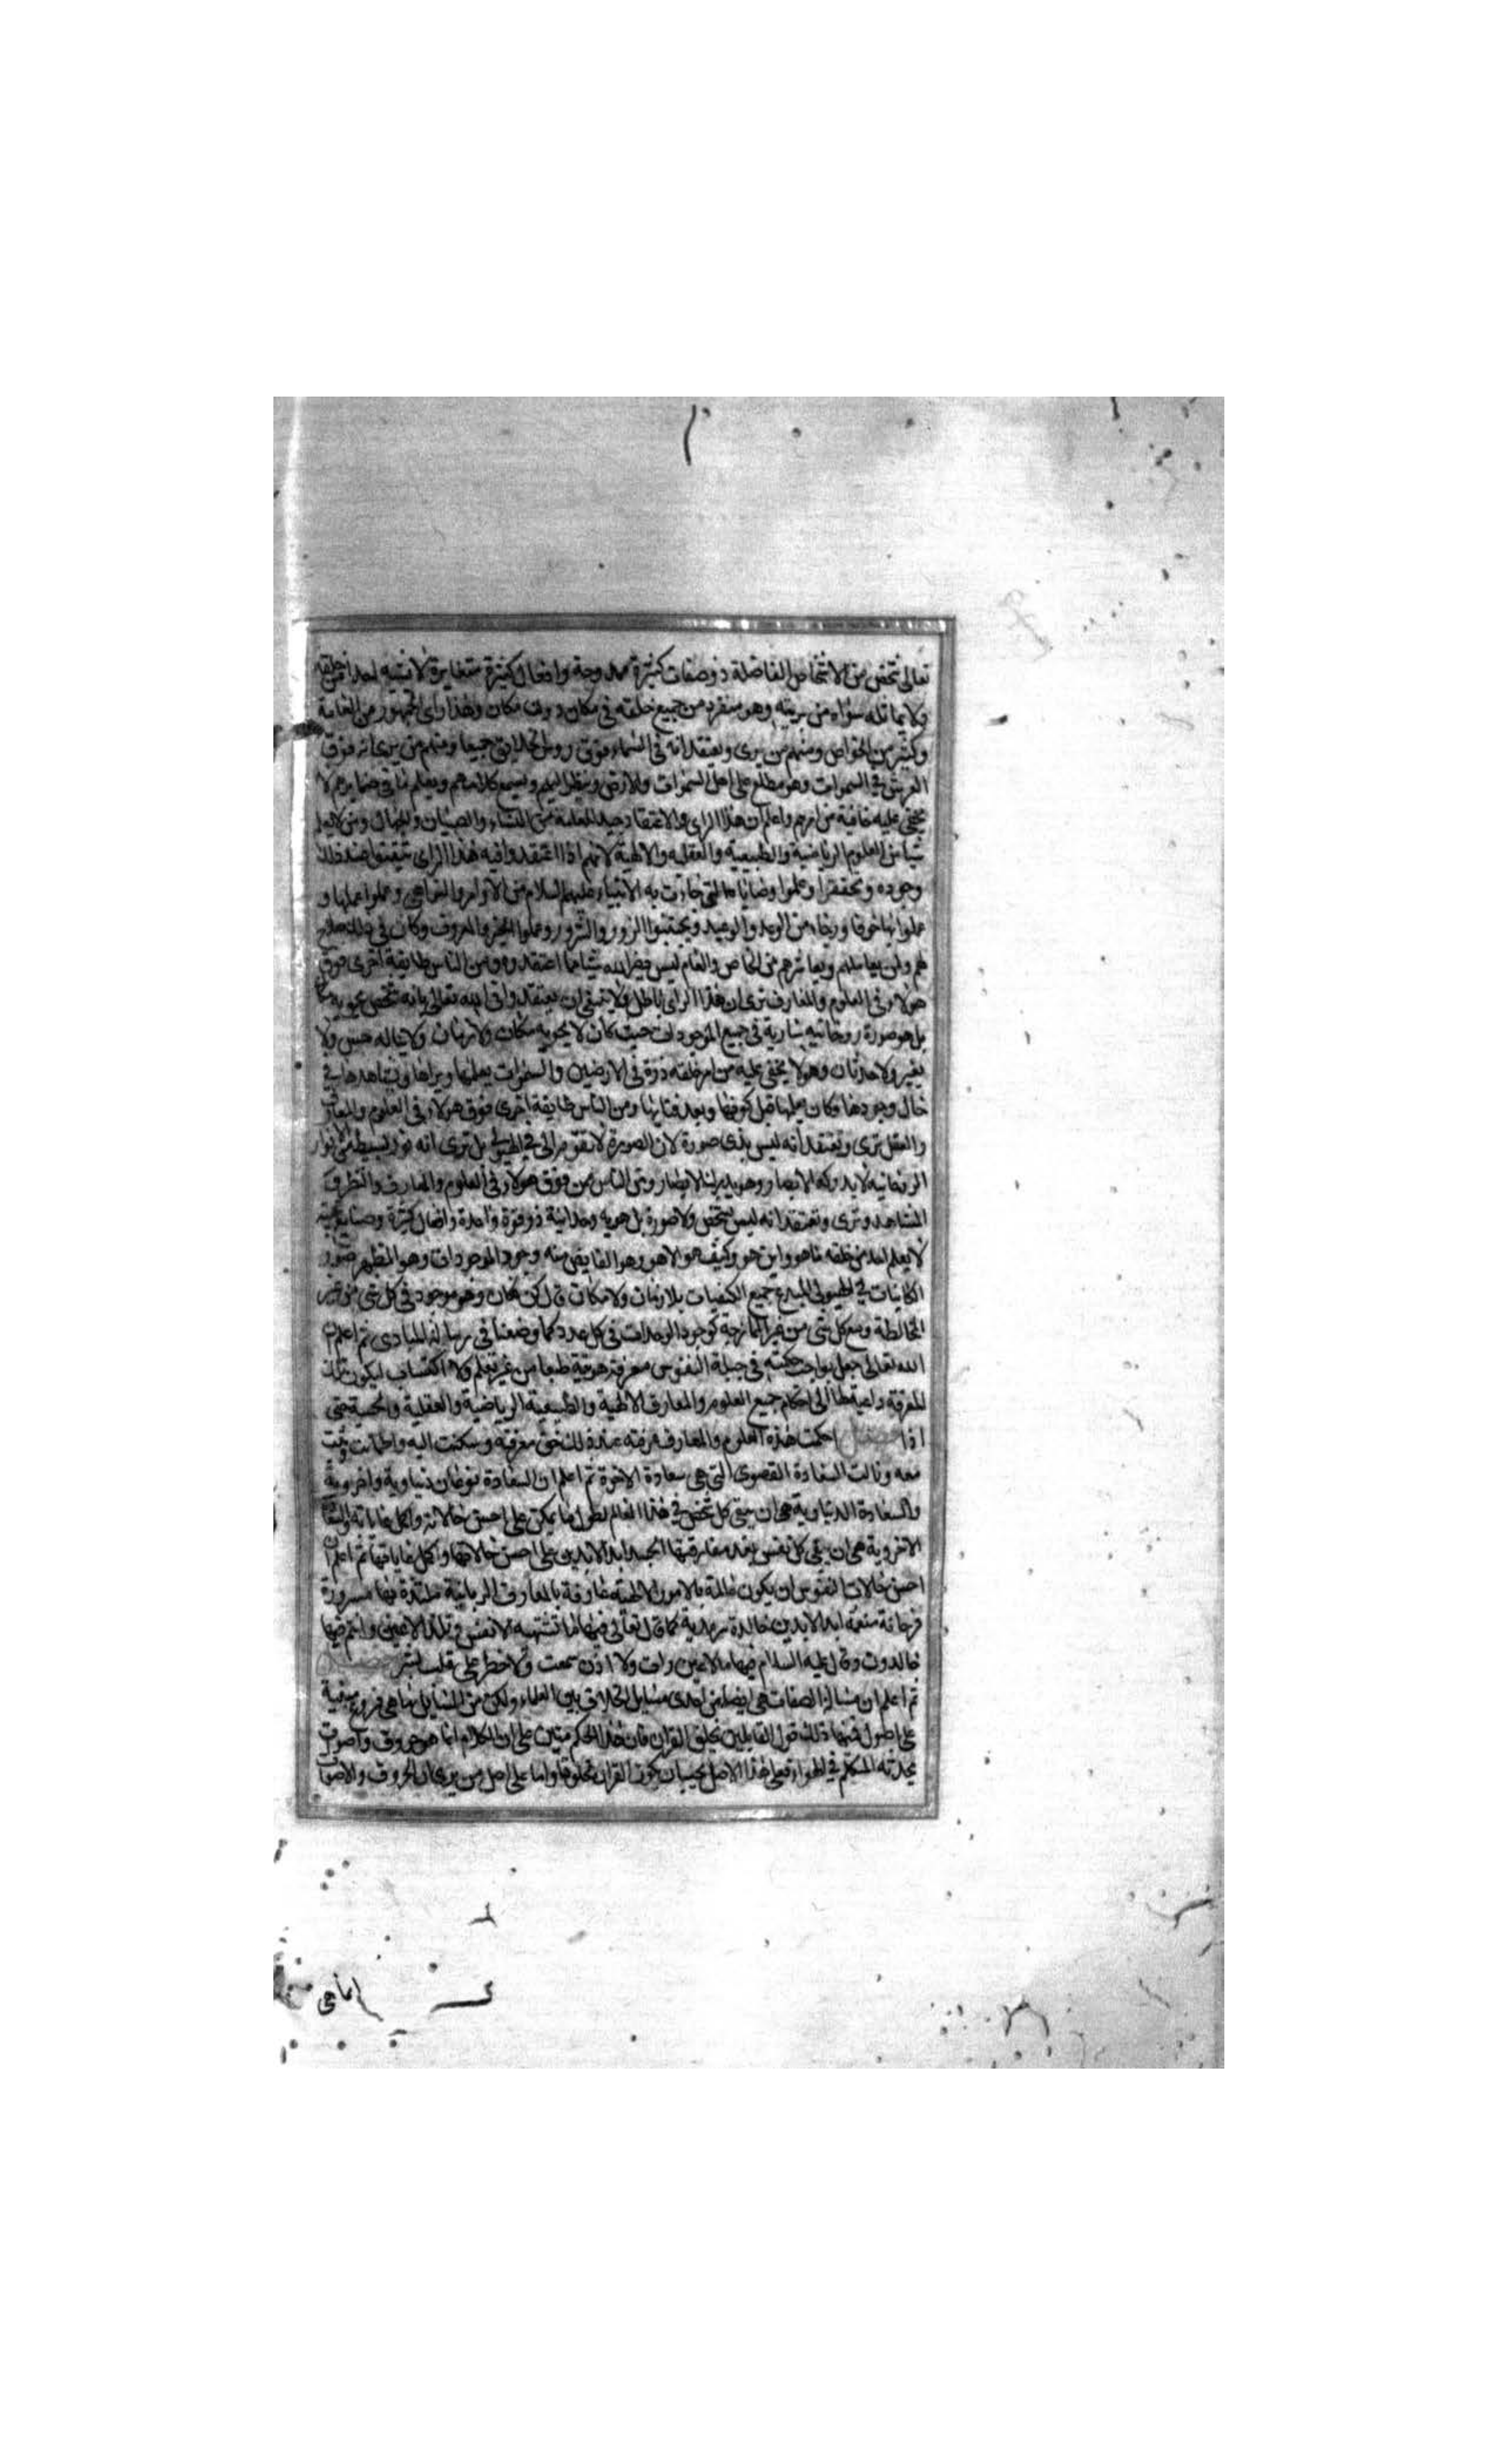 تعالى شخص من الاشخاص الفاضلة ذو صفات كثيرة ممدوحة وافعال كثيرة متغايرة لا يشبه احدا من خلقه
ولا يماثله سواه من بريته وهو منفرد من جميع خلقه في مكان دون مكان وهذا راى الجمهور من العامة
وكثير من الخواص ومنهم من يرى ويعتقد انه في السماء فوق روس الخلايق جميعا ومنهم من يرى انه فوق
العرش في السموات وهو مطلع على اهل السموات والارض وينظر اليهم ويسمع كلامهم ويعلم ما في ضمايرهم لا
يخفى عليه خافية من امرهم واعلم ان هذا الراى والاعتقاد جيد للعامة من النساء والصبيان والجهال ومن لا يعلم
شيا من العلوم الرياضية والطبيعية والعقلية والالهية لانهم اذا اعتقدوا فيه هذا الراى تيقنوا عند ذلك
وجوده وتحققوا وعلموا وصاياه التي جاءت به الانبياء عليهم السلام من الاوامر والنواهي وعملوا عملها و
عملوا بها خوفا ورجاء من الوعد والوعيد ويجتنبوا الزور والشرور وعملوا الخير والمعروف وكان في ذلك صلاح
لهم ولمن يعاملهم ويعاشرهم من الخاص والعام ليس يضر الله شيا مما اعتقدوه ومن الناس طايفة اخرى فوق
هولاء في العلوم والمعارف ترى ان هذا الراى باطل ولا ينبغي ان يعتقدوا في الله تعالى بانه شخص يحويه مكان
بل هو صورة روحانية سارية في جميع الموجودات حيث كان لا يحويه مكان ولا زمان ولا يناله حس ولا
تغير ولا حدثان وهو لا يخفى عليه من امر خلقه ذرة في الارضين والسموات يعلمها ويراها ويشاهدها في
حال وجودها وكان يعلمها قبل كونها وبعد فنائها ومن الناس طايفة اخرى فوق هولاء في العلوم والمعارف
والعقل ترى وتعتقد انه ليس بذى صورة لان الصورة لا تقوم الا في الهيولى بل ترى انه نور بسيط من الانوار
الروحانية لا يدركه الابصار وهو يدرك الابصار ومن الناس من فوق هولاء في العلوم والمعارف والنظر و
المشاهد وترى وتعتقد انه ليس بشخص ولا صورة بل هوية وحدانية ذو قوة واحدة وافعال كثيرة وصنايع عجيبة
لا يعلم احد من خلقه ما هو واين هو وكيف هو الا هو وهو الفايض منه وجود الموجودات وهو المظهر صور
الكاينات في الهيولى المبدع جميع الكيفيات بلا زمان ولا مكان قال كن فكان وهو موجود في كل شى من غير
المخالطة ومع كل شى من غير الممازجة كوجود الواحدات في كل عدد كما وصفنا في رسالة المبادى ثم اعلم ان
الله تعالى جعل بواجب حكمته في جبلة النفوس معرفة هويته طبعا من غير تعلم ولا اكتساب ليكون تلك
المعرفة داعية لها الى احكام جميع العلوم والمعارف الالهية والطبيعية الرياضية والعقلية والحسية حتى
اذا احكمت هذه العلوم والمعارف عرفته عند ذلك حق معرفته وسكنت اليه واطمانت وثبت
معه ونالت السعادة القصوى التي هي سعادة الاخرة ثم اعلم ان السعادة نوعان دنياوية واخروية
والسعادة الدنياوية هي ان يبقى كل شخص في هذا العالم اطول ما يمكن على احسن حالاته واكمل غاياته والسعادة
الاخروية هي ان يبقى كل نفس بعد مفارقتها الجسد ابد الابدين على احسن حالاتها واكمل غاياتها ثم اعلم ان
احسن حالات النفوس ان يكون عالمة بالامور الالهية عارفة بالمعارف الربانية ملتذة بها مسرورة
فرحانة منعمة ابد الابدين خالدة سرمدية كما قال تعالى فيها ما تشتهيه الانفس وتلذ الاعين وانتم فيها
خالدون وقال عليه السلام فيها ما لا عين رات ولا اذن سمعت ولا خطر على قلب بشر
ثم اعلم ان مسالة الصفات هي ايضا من احدى مسايل الخلاف بين العلماء ولكن من المسايل ما هي فروع مبنية
على اصول فمنها ذلك قول القايلين بخلق القران فان هذا الحكم مبنى على ان الكلام انما هو حروف واصوات
يحدثه المتكلم في الهواء فعلى هذا الاصل يجب ان يكون القران مخلوقا واما على اصل من يرى ان الحروف والاصوات
انما هي